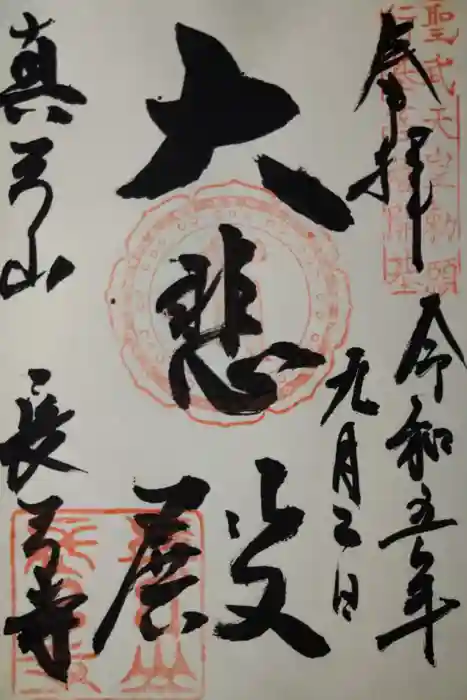 奉拝
令和五年
九月二日
大悲殿
真弓山
長弓寺
聖武天皇勅願